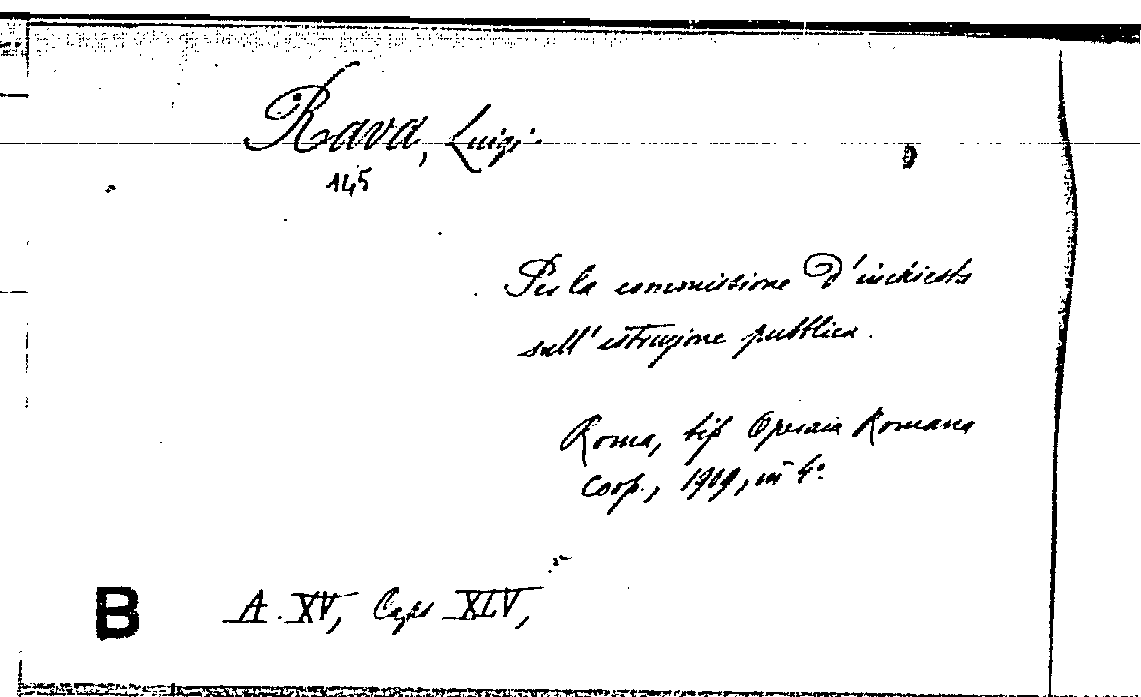 Rava, Luigi.
145
Per la commissione D'inchiesta
sull'istruzione pubblica.
Roma, tip Operaia Romana
Coop., 1919, in 4°
B A. XV, Caps XLV,